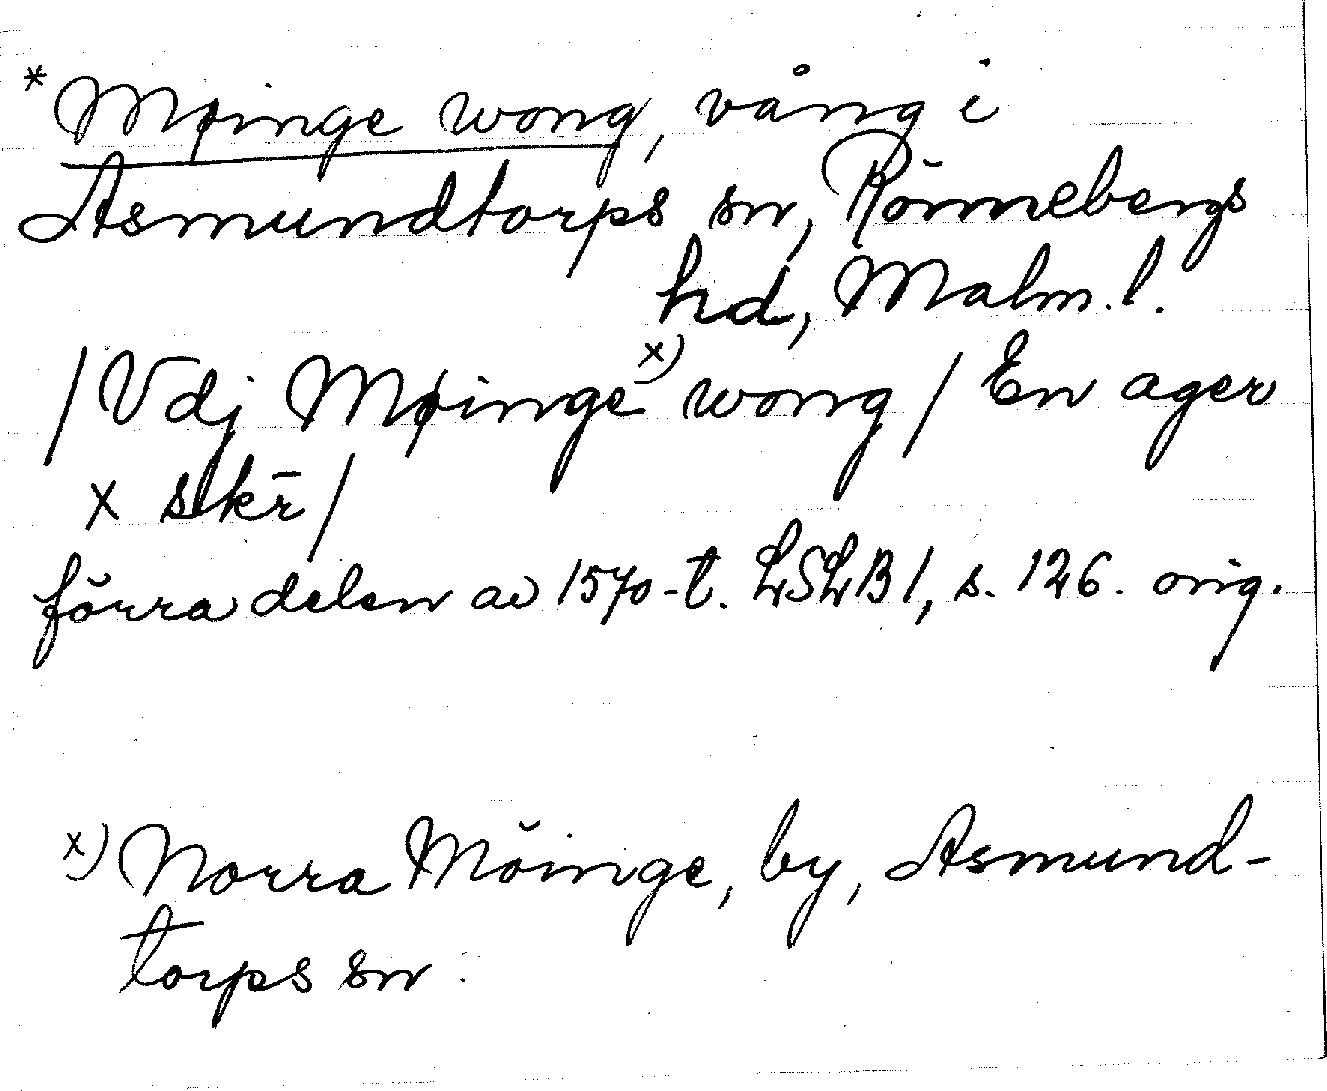 * Møinge wong, vång i
Asmundtorps sn, Rönnebergs
hd, Malm. l.
/ Vdj Møinge x) wong / En ager
x skr̄ /
förra delen av 1570-t. LSLB 1, s. 126. orig.
x) Norra Möinge, by, Asmund-
torps sn.